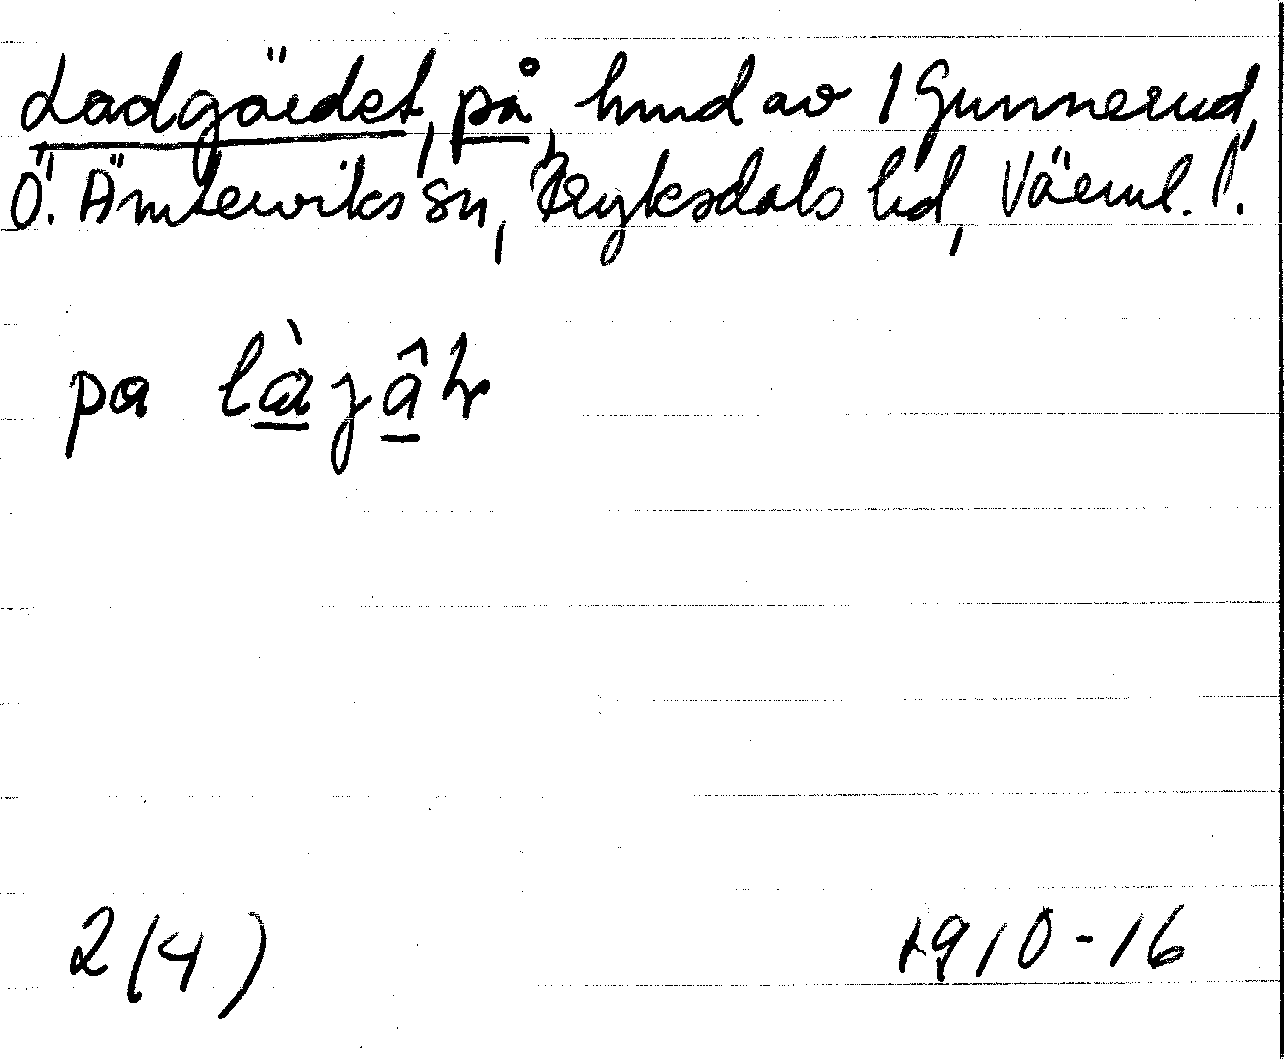 Ladgärdet, på, hmd av 1 Gunnerud,
Ö. Ämterviks sn, Fryksdals hd, Värml. l.
pa
2(4) 1910-16